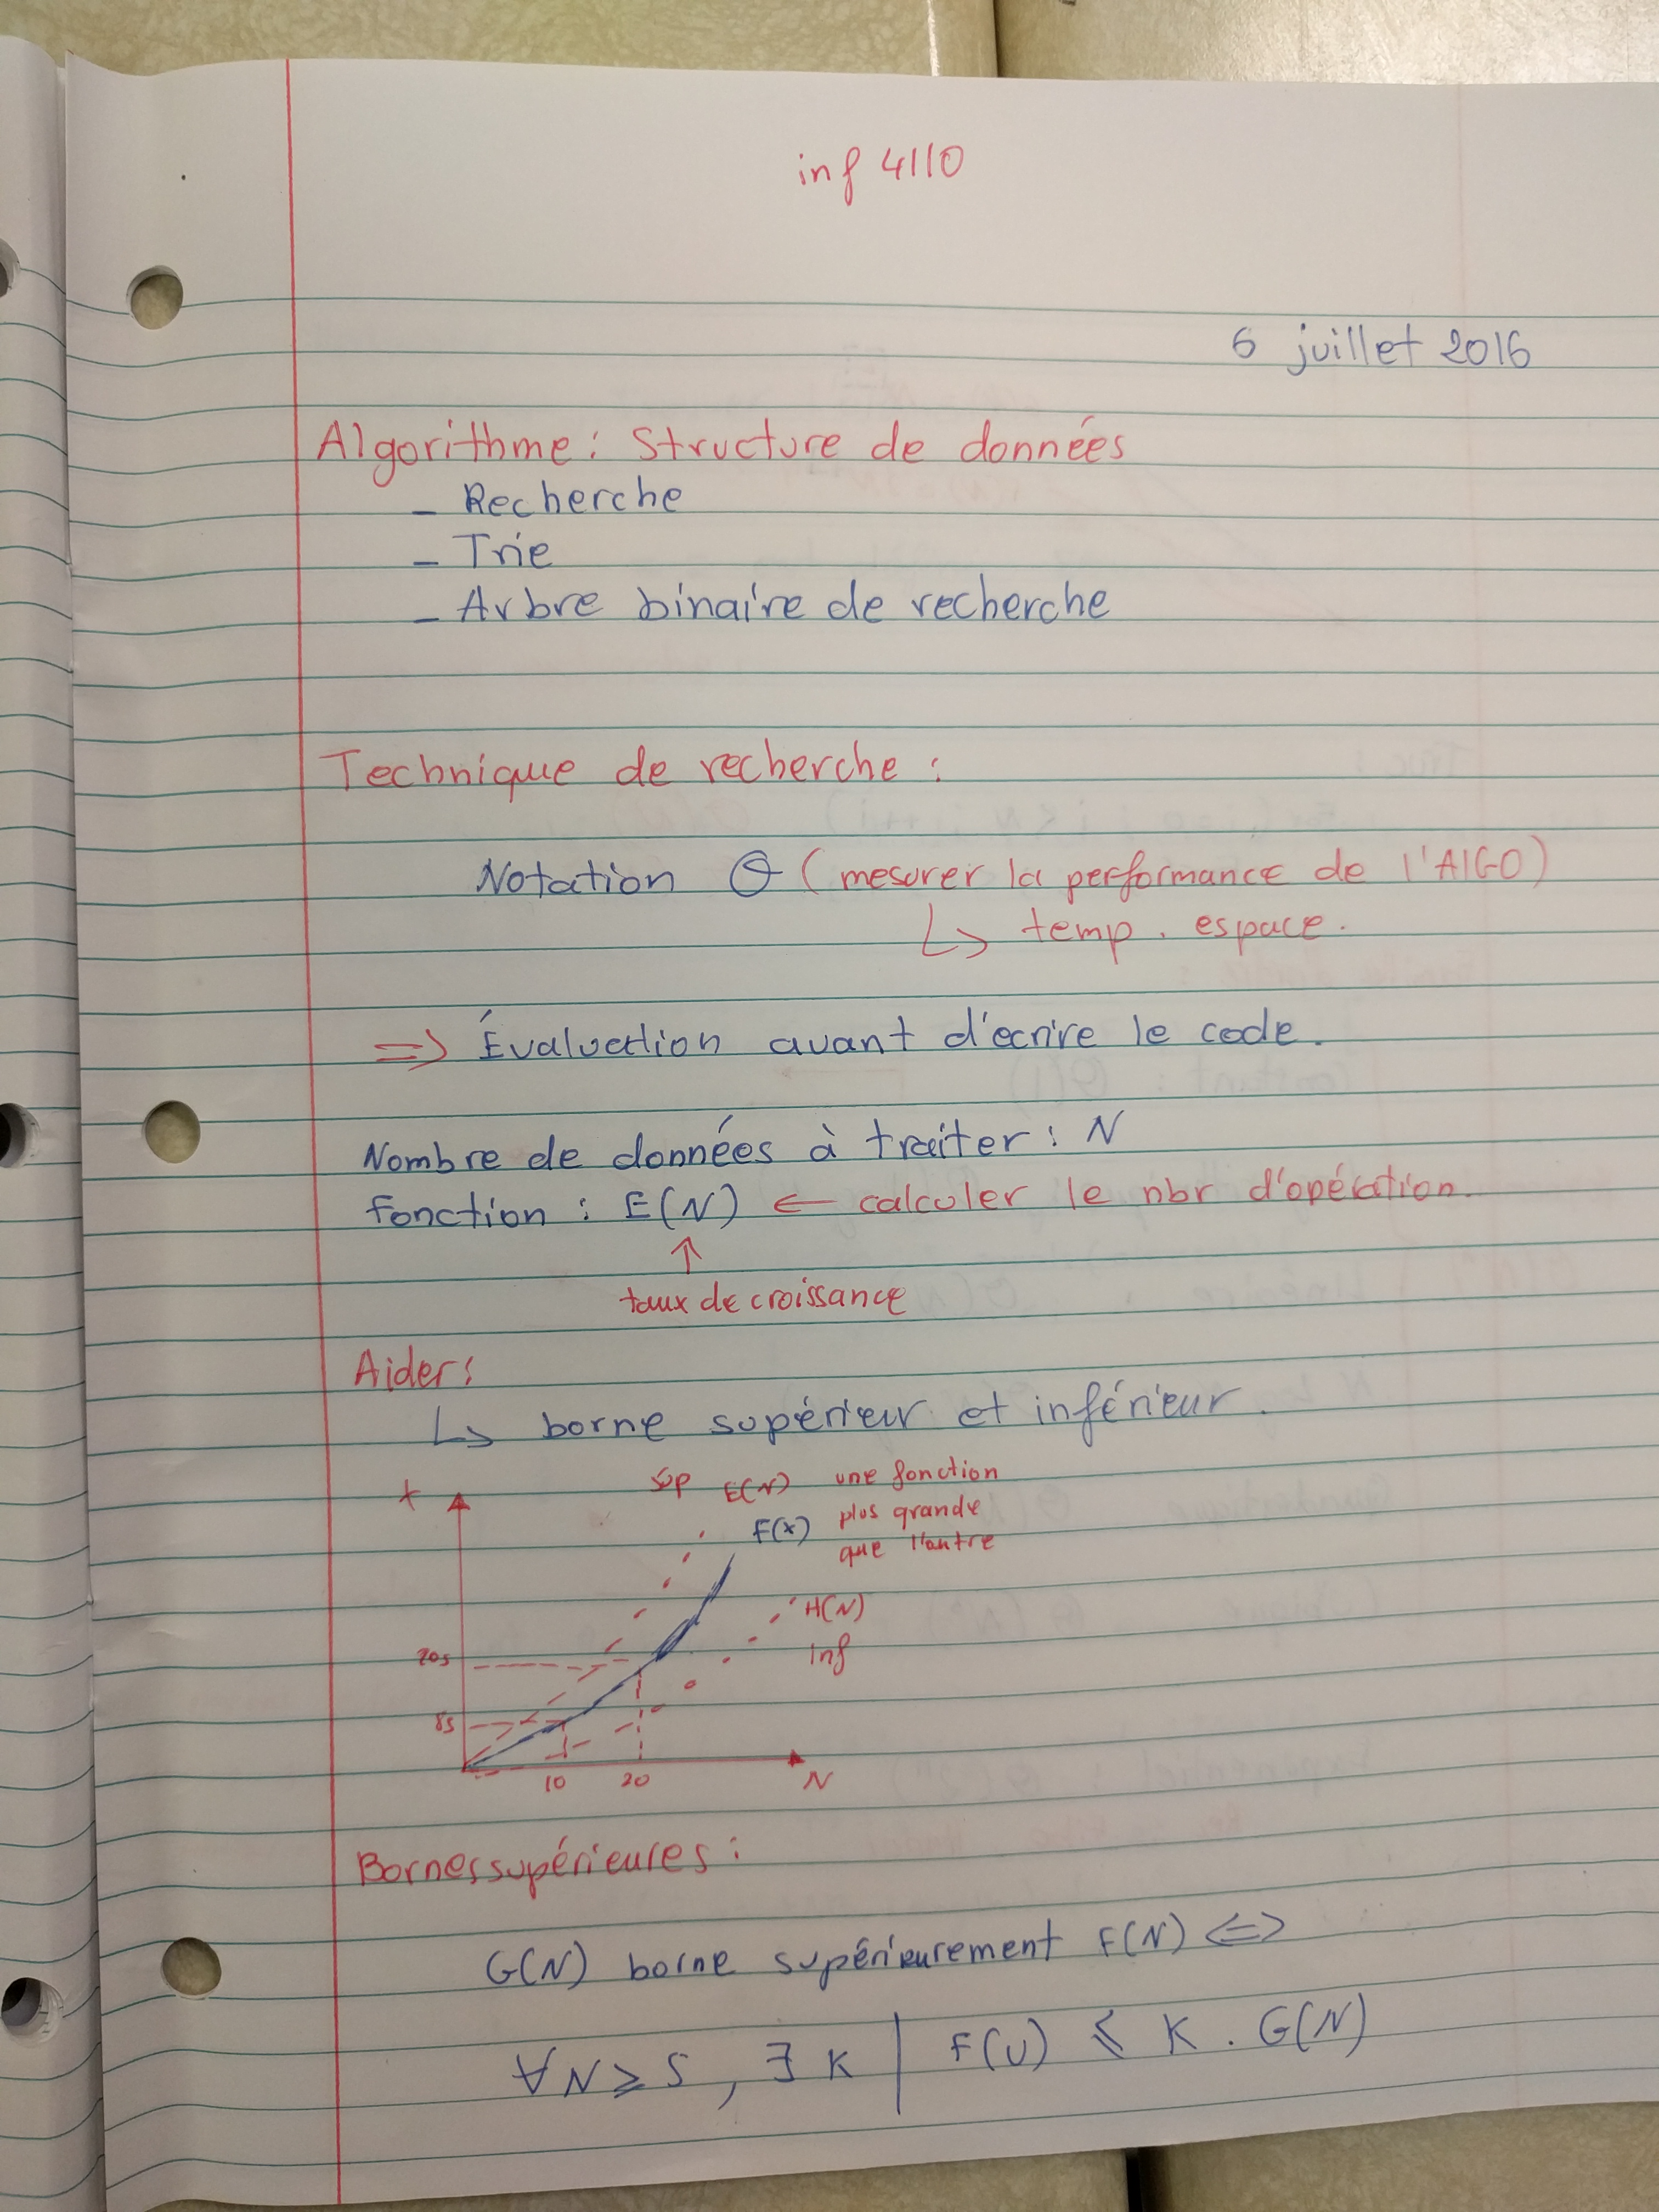 inf 4110
6 juillet 2016
Algorithme: Structure de données
- Recherche
- Trie
- Arbre binaire de recherche
Technique de recherche :
Notation Θ (mesurer la performance de l'AlGO)
↳ temp. espace.
=> Évaluation avant d'ecrire le code.
Nombre de données à traiter: N
Fonction : E(N) ← calculer le nbr d'opération.
↑
taux de croissance
Aider:
↳ borne supérieur et inférieur.
t
Sup E(N) une fonction
F(x) plus grande
que l'autre
H(N)
Inf
20s
8s
10 20 N
Bornes supérieures :
G(N) borne supérieurement F(N) <=>
∀N ⩾ S, ∃ K | F(U) ⩽ K . G(N)